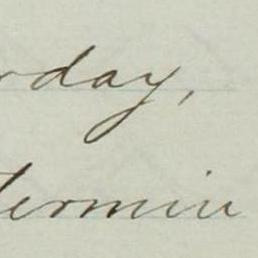 rday,
termin